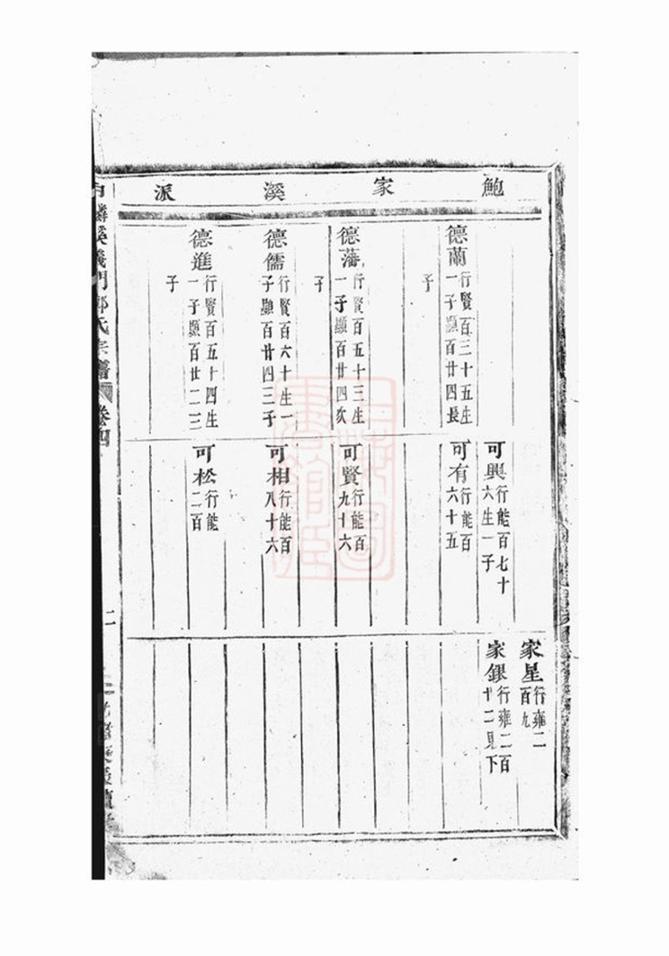 鮑家溪派
德蘭
行賢百三十五生
一子顯百廿四長
子
德藩
行賢百五十三生
一子顯百廿四次
子
德儒
行賢百六十生一
子顯百廿四三子
德進
行賢百五十四生
一子顯百廿二三
子
可興
行能百七十
六生一子
可有
行能百
六十五
可賢
行能百
九十六
可相
行能百
八十六
可松
行能
二百
家星
行雍二
百九
家銀
行雍二百
廿二見下
麟溪義門鄭氏宗譜
卷四